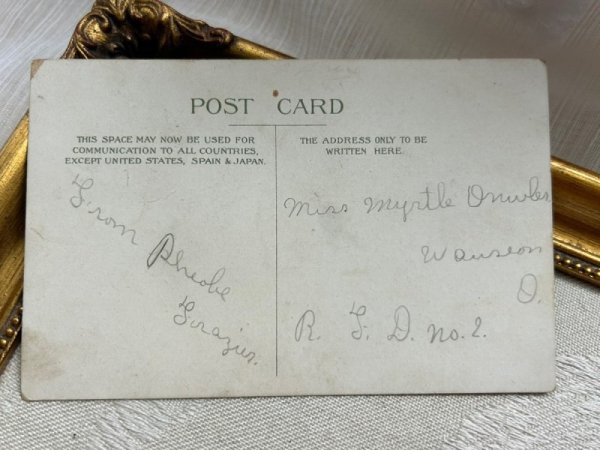 POST CARD
THIS SPACE MAY NOW BE USED FOR
COMMUNICATION TO ALL COUNTRIES,
EXCEPT UNITED STATES, SPAIN & JAPAN.
THE ADDRESS ONLY TO BE
WRITTEN HERE.
From
Pheobe
Frazier.
Miss Myrtle
Wauseon
O.
R. F. D. no. 2.